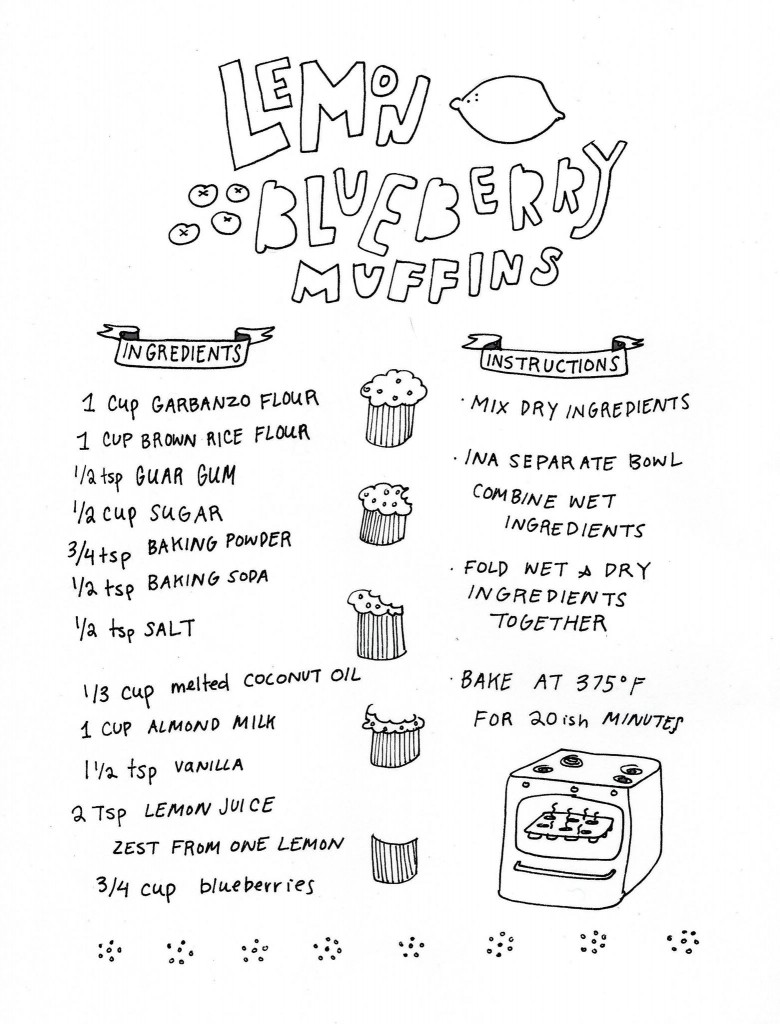 LEMON
BLUEBERRY
MUFFINS
INGREDIENTS
1 CUP GARBANZO FLOUR
1 CUP BROWN RICE FLOUR
1/2 tsp GUAR GUM
1/2 CUP SUGAR
3/4 tsp BAKING POWDER
1/2 tsp BAKING SODA
1/2 tsp SALT
1/3 cup melted COCONUT OIL
1 CUP ALMOND MILK
1 1/2 tsp VANILLA
2 Tsp LEMON JUICE
ZEST FROM ONE LEMON
3/4 cup blueberries
INSTRUCTIONS
· MIX DRY INGREDIENTS
· IN A SEPARATE BOWL
COMBINE WET
INGREDIENTS
· FOLD WET & DRY
INGREDIENTS
TOGETHER
· BAKE AT 375°F
FOR 20ish MINUTES